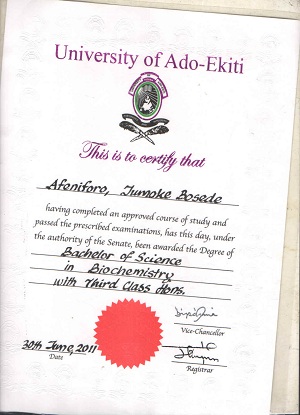 University of Ado-Ekiti
This is to certify that
Afeniforo, Jumoke Bosede
having completed an approved course of study and
passed the prescribed examinations, has this day, under
the authority of the Senate, been awarded the Degree of
Bachelor of Science
in Biochemistry
with Third Class Hons.
Vice-Chancellor
30th June, 2011
Date
Registrar